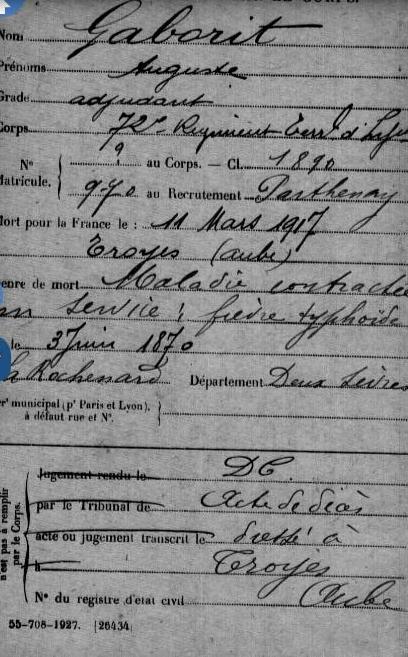 Nom Gaborit
Prénoms Auguste
Grade adjudant
Corps 72e Régiment Terral d'Infan
N° ? au Corps. — Cl. 1890
Matricule. 970 au Recrutement Parthenay
Mort pour la France le : 11 Mars 1917
Troyes (aube)
enre de mort Maladie contractée
en service : fièvre typhoïde
le 3 Juin 1870
la Rochenard Département Deux Sèvres
r' municipal (p' Paris et Lyon), à défaut rue et N°.
n'est pas à remplir par le Corps.
Jugement rendu le D.C.
par le Tribunal de Acte de décès
acte ou jugement transcrit le dressé à
à Troyes
Aube
N° du registre d'état civil
55-708-1927. [26434]